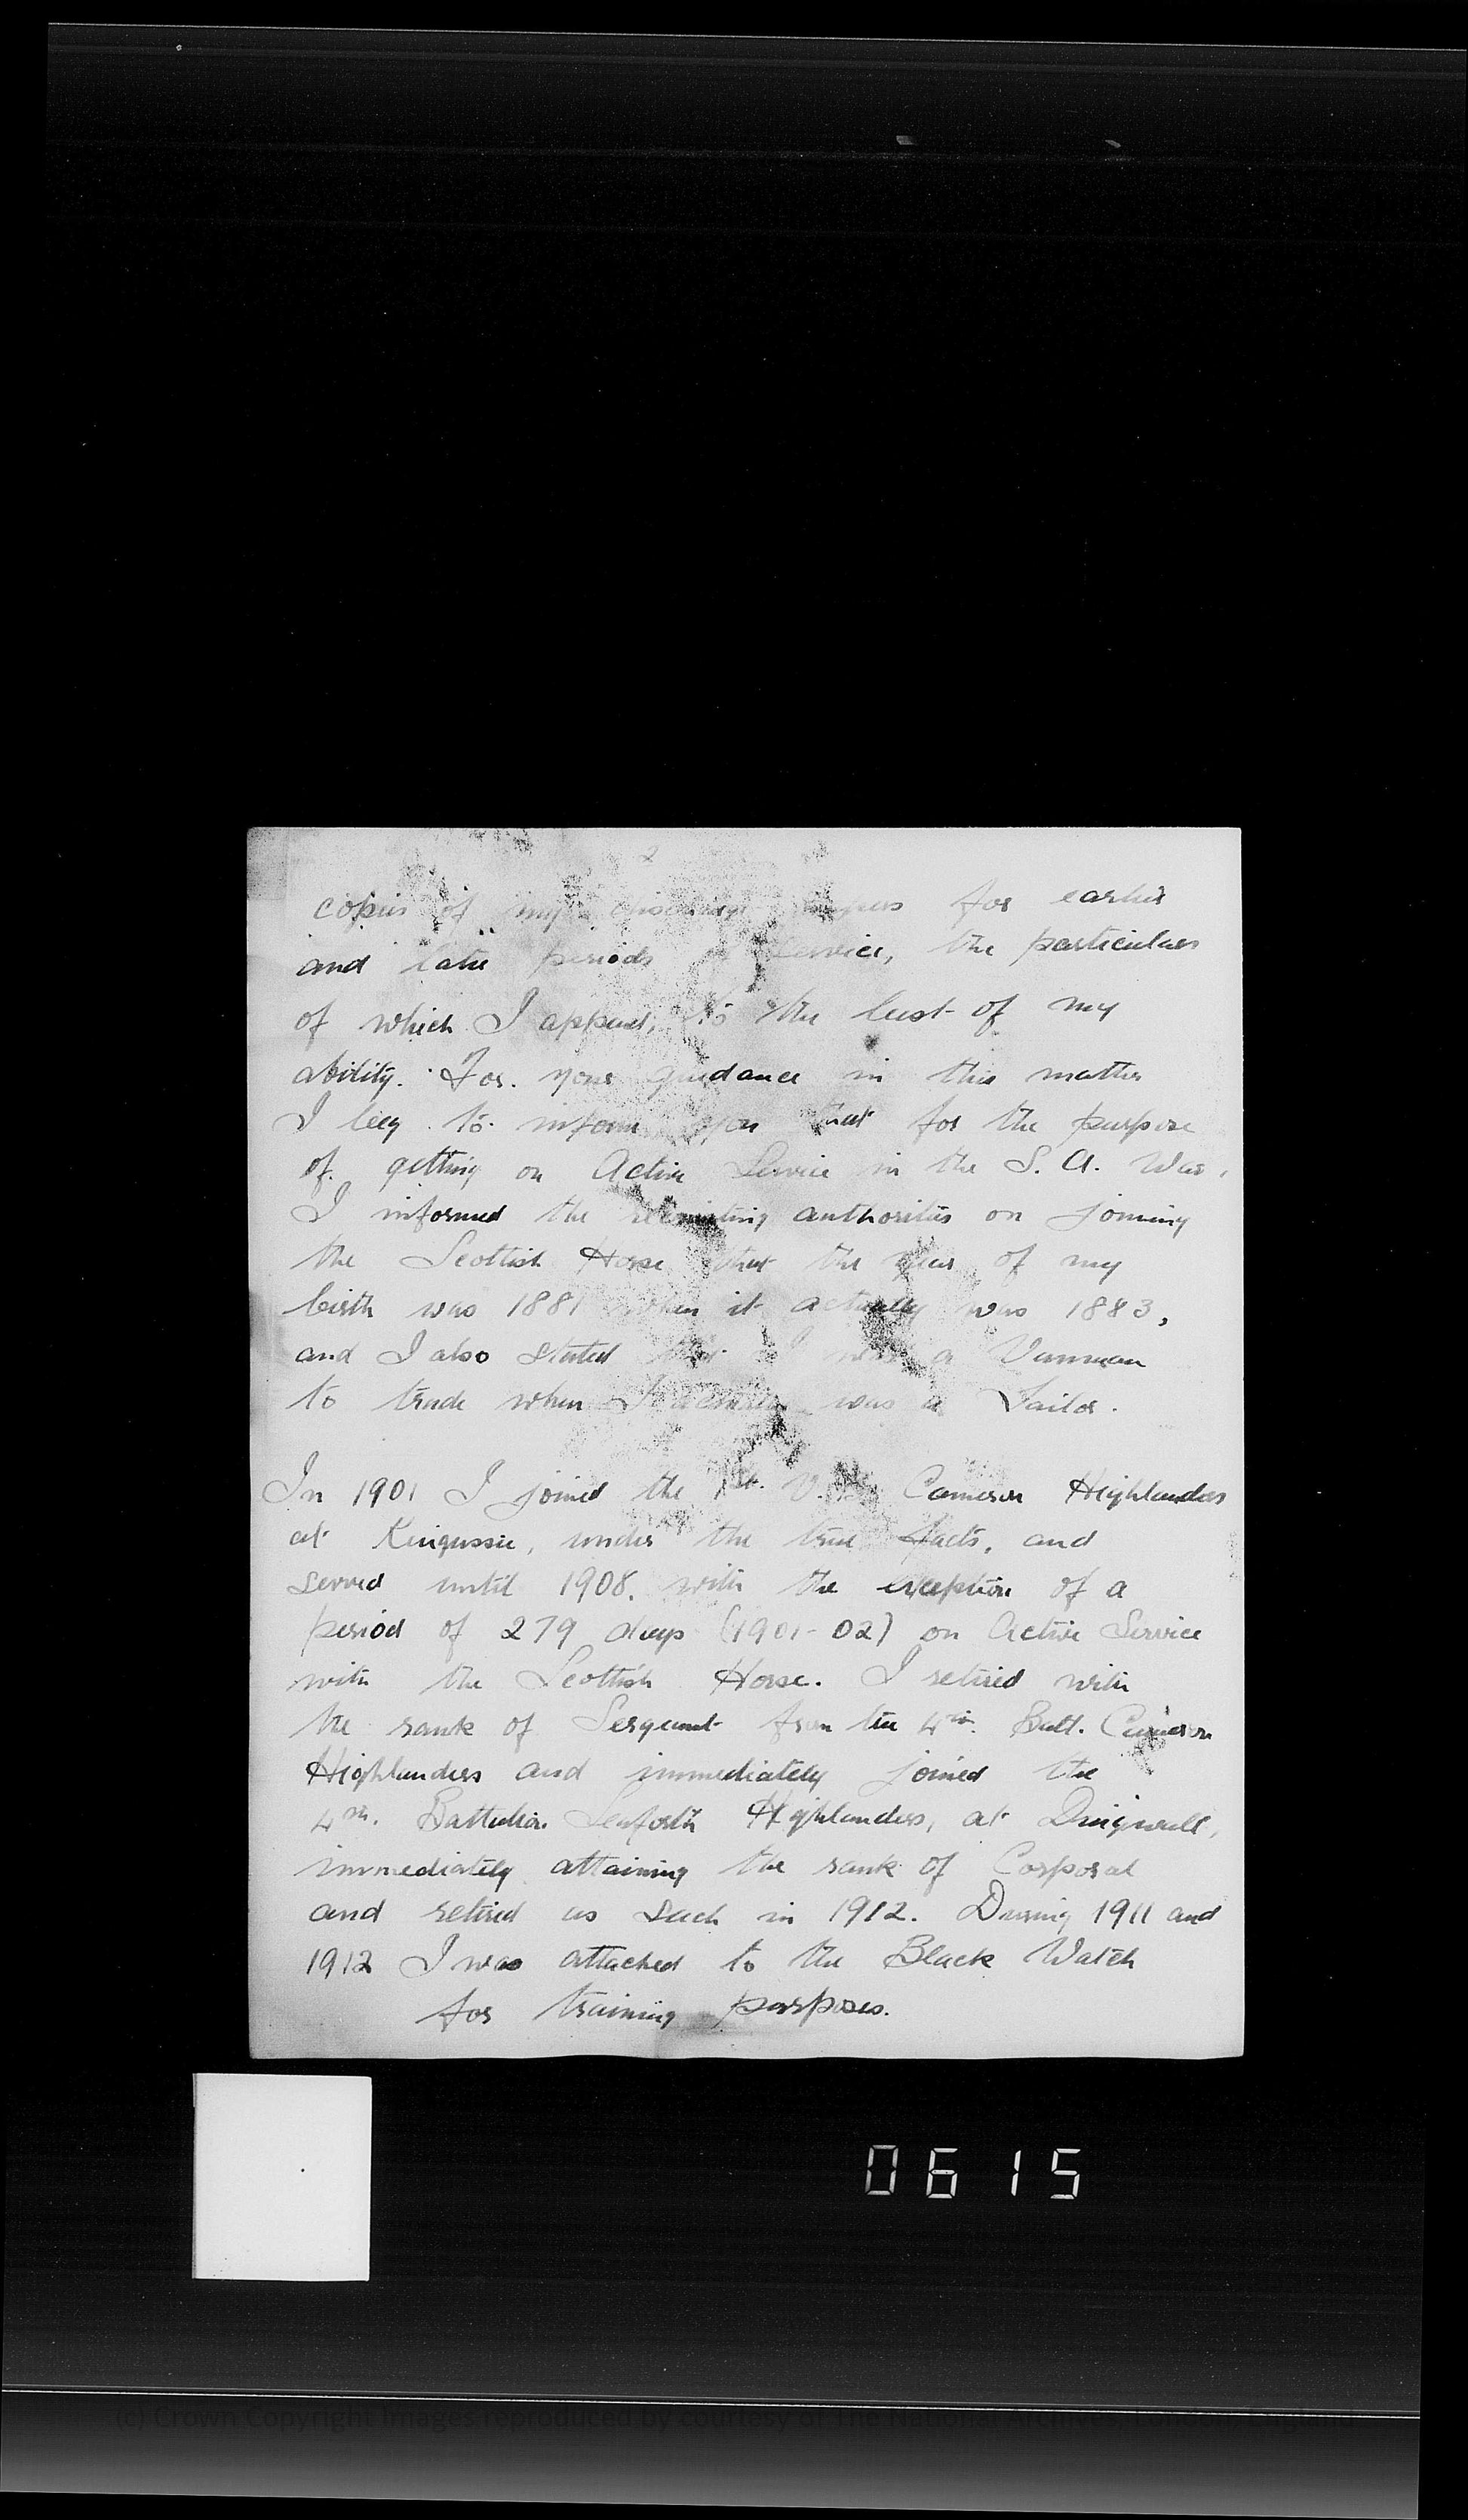 2
copies of my discharge papers for earlier
and later periods of Service, the particulars
of which I append, to the best of my
ability. For your guidance in this matter
I beg to inform you that for the purpose
of getting on Active Service in the S. A. War,
I informed the recruiting authorities on joining
the Scottish Horse that the year of my
birth was 1881 when it actually was 1883,
and I also stated that I was a Vanman
to trade when I actually was a Tailor.
In 1901 I joined the 1st. V.B. Cameron Highlanders
at Kingussie, under the true facts, and
served until 1908, with the exception of a
period of 279 days (1901-02) on Active Service
with the Scottish Horse. I retired with
the rank of Sergeant from the 4th. Batt. Cameron
Highlanders and immediately joined the
4th. Battalion Seaforth Highlanders, at Dingwall,
immediately attaining the rank of Corporal
and retired as such in 1912. During 1911 and
1912 I was attached to the Black Watch
for training purposes.
0615
(c) Crown Copyright Images reproduced by courtesy of The National Archives